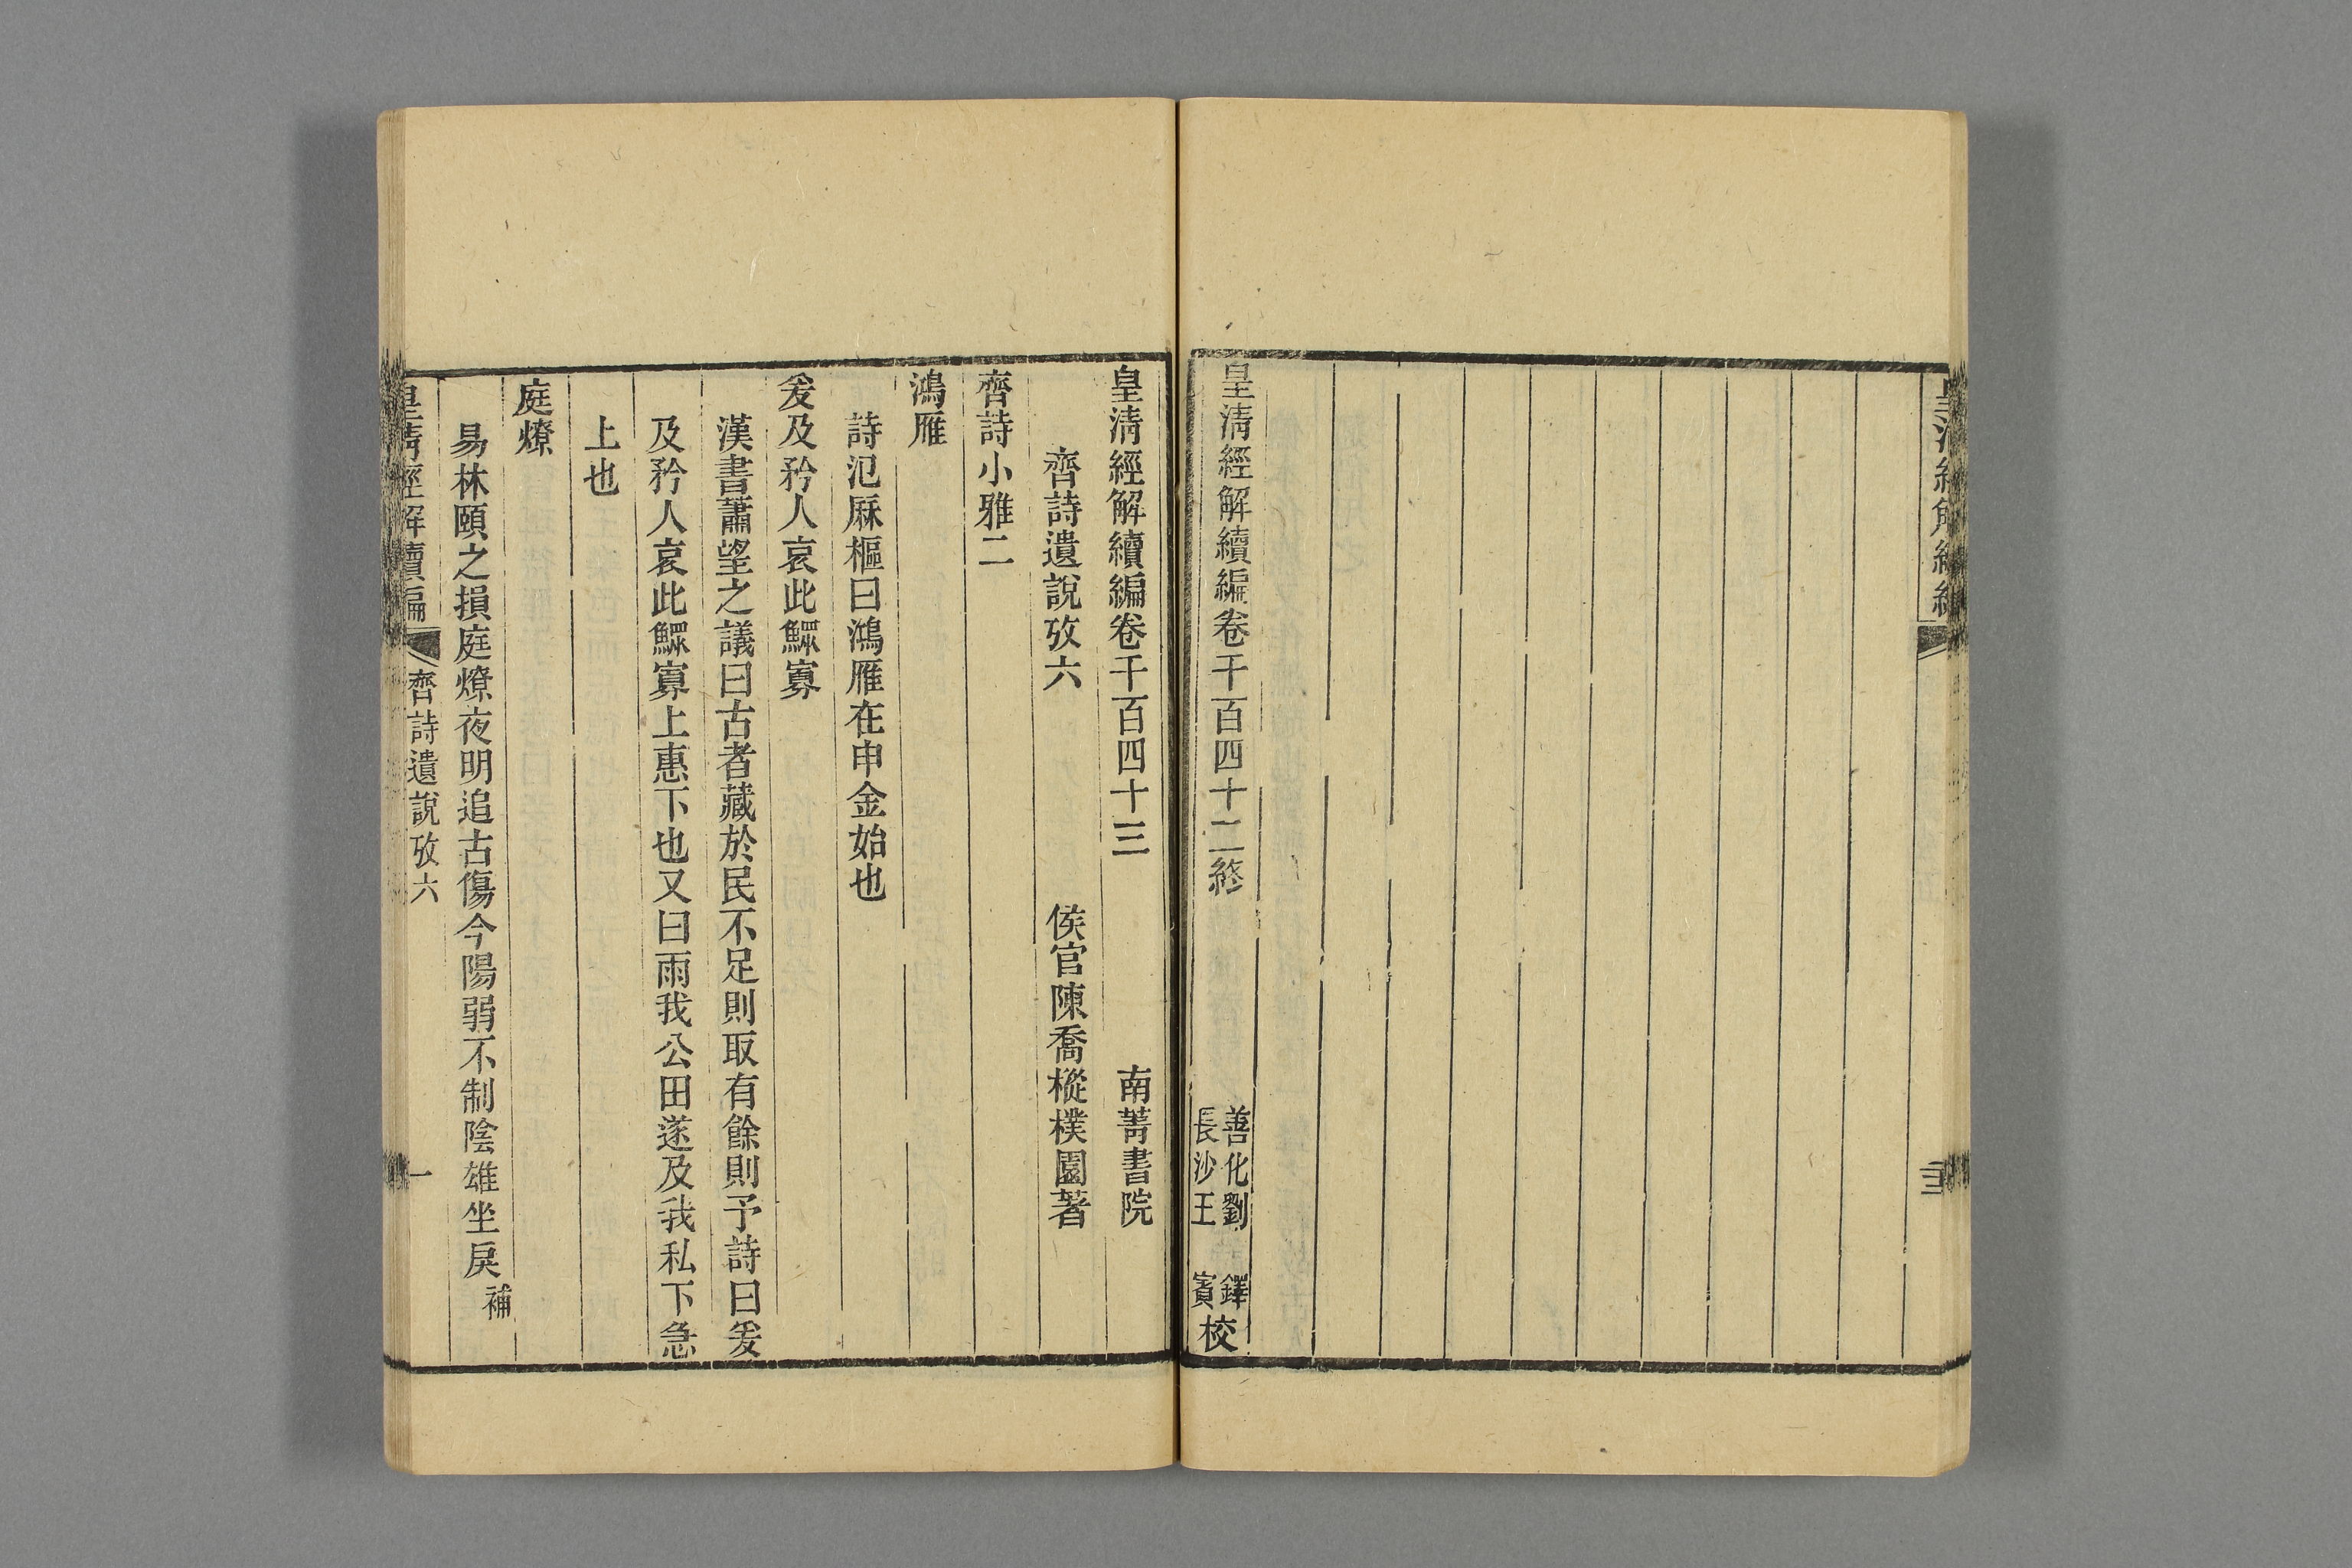 皇清經解續編卷千百四十二終
善化劉 鐸
長沙王 賓
校
皇清經解續編卷千百四十三
南菁書院
齊詩遺說攷六
侯官陳喬樅樸園著
齊詩小雅二
鴻雁
詩氾厤樞曰鴻雁在申金始也
爰及矜人哀此鰥寡
漢書蕭望之議曰古者藏於民不足則取有餘則予詩曰爰
及矜人哀此鰥寡上惠下也又曰雨我公田遂及我私下急
上也
庭燎
易林頤之損庭燎夜明追古傷今陽弱不制陰雄坐戾補
皇清經解續編
齊詩遺說攷六
一